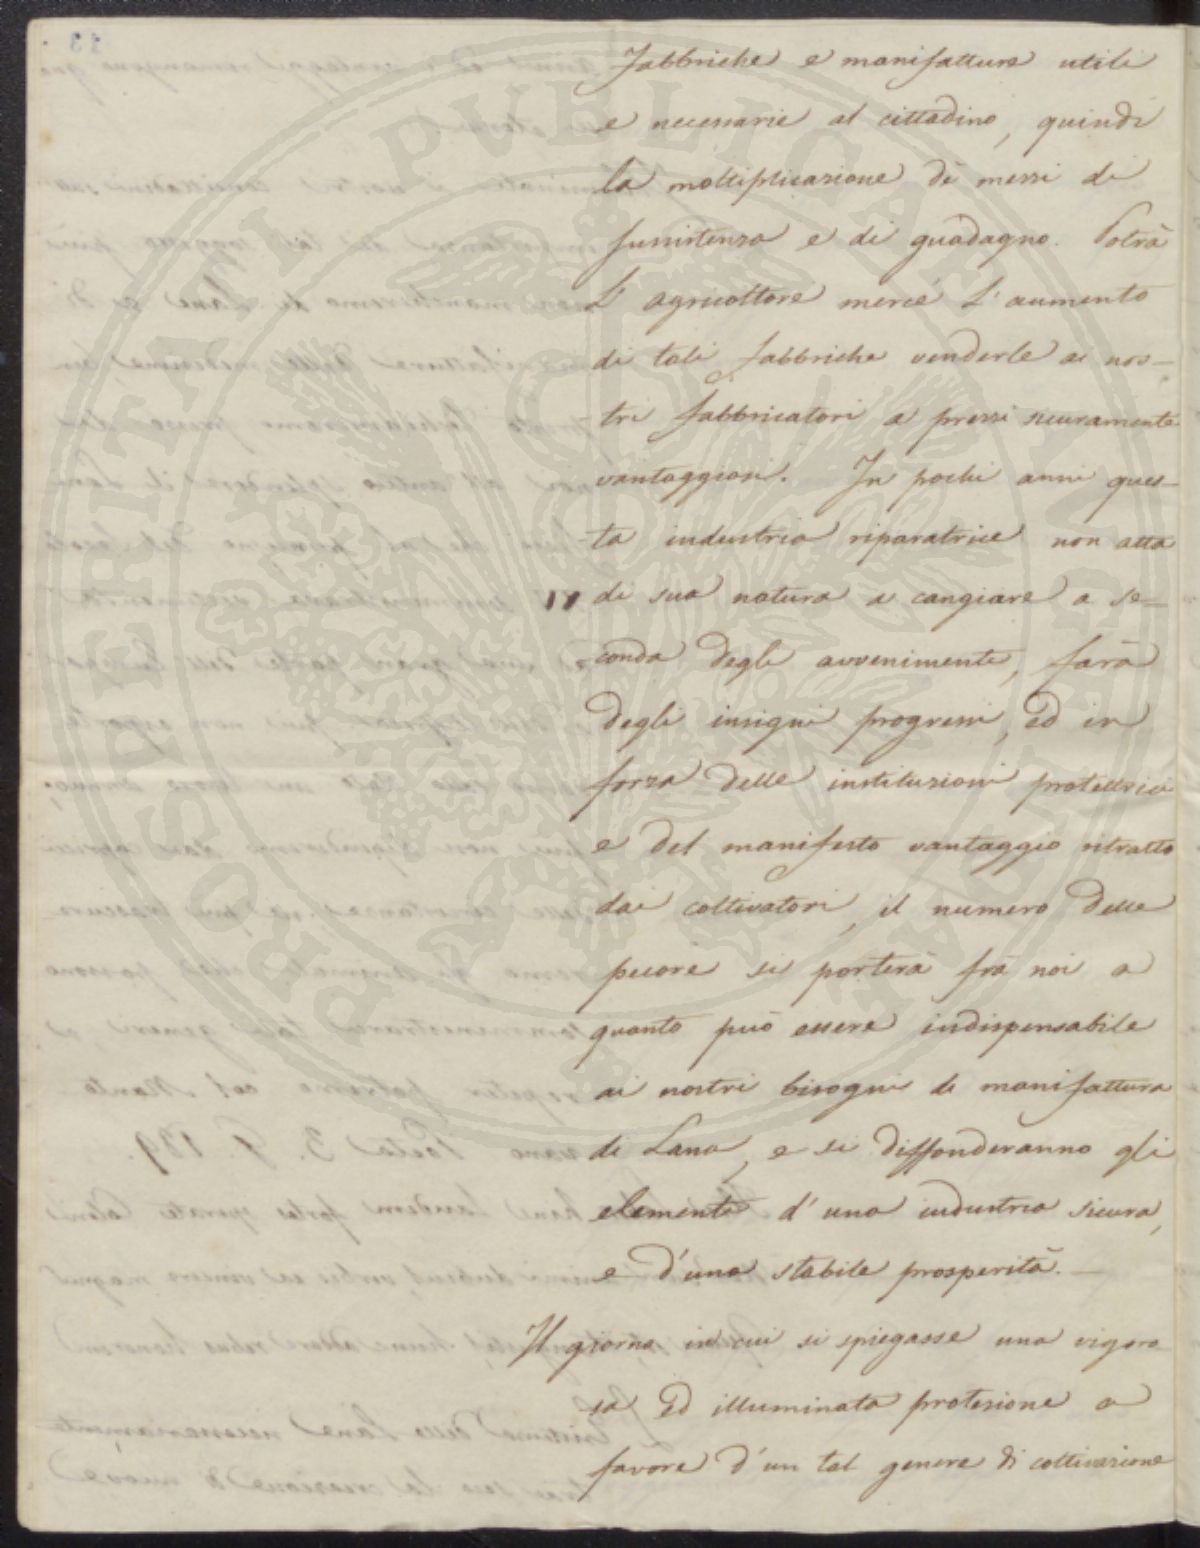 PROSPERITATI PUBLICAE AUGENDAE
13
Fabbriche e manifatture utili
e necessarie al cittadino, quindi
la moltiplicazione di mezzi di
sussistenza e di guadagno. Potrà
L'agricoltore mercé L'aumento
di tali fabbriche venderle ai nos-
tri fabbricatori a prezzi sicuramente
vantaggiosi. In pochi anni ques-
ta industria riparatrice non atta
di sua natura a cangiare a se-
conda degli avvenimenti, farà
degli insigni progressi, ed in
forza delle instituzioni protettrici
e del manifesto vantaggio ritratto
dai coltivatori, il numero delle
pecore si porterà frà noi a
quanto può essere indispensabile
ai nostri bisogni di manifattura
di Lana, e si diffonderanno gli
elementi d'una industria sicura,
e d'una stabile prosperità.
Il giorno in cui si spiegasse una vigoro
sa ed illuminata protezione a
favore d'un tal genere di coltivazione